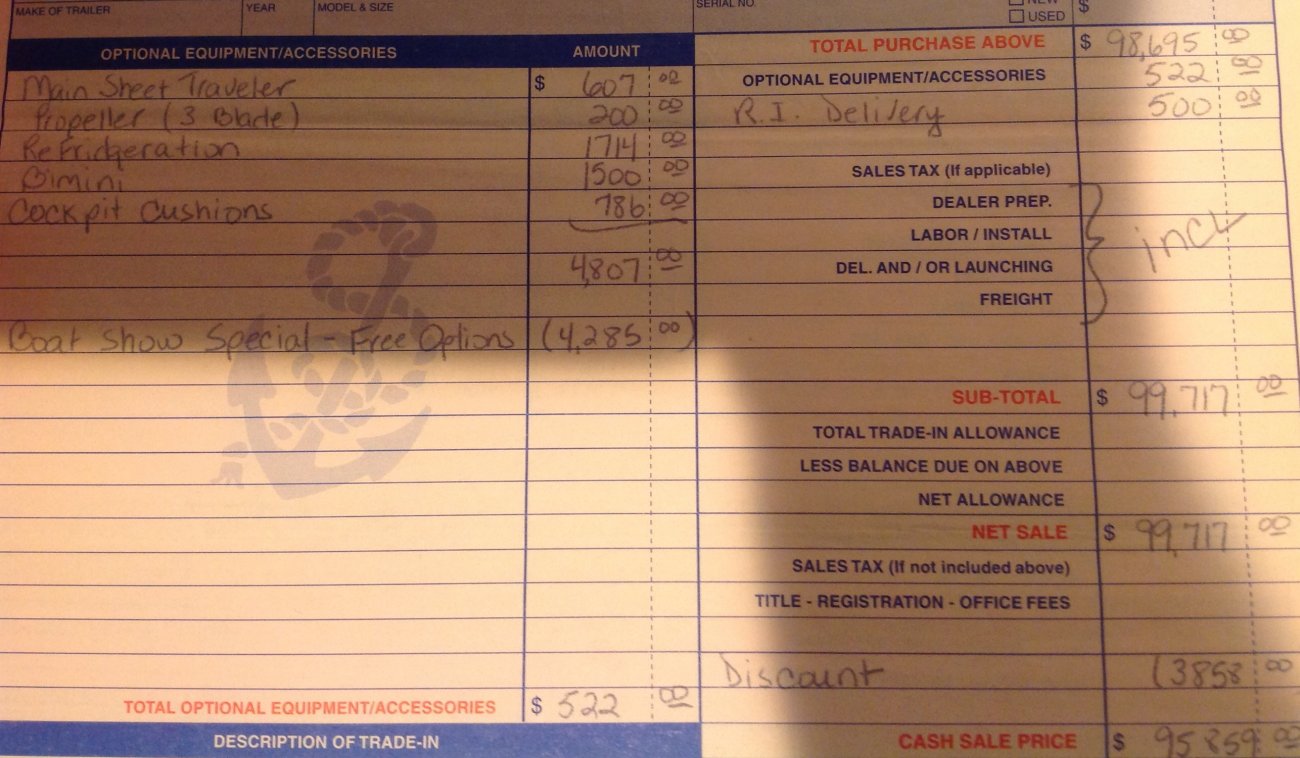 MAKE OF TRAILER YEAR MODEL & SIZE SERIAL NO. NEW
USED $
OPTIONAL EQUIPMENT/ACCESSORIES AMOUNT
Main Sheet Traveler $ 607 00
Propeller (3 Blade) 200 00
Refridgeration 1714 00
Bimini 1500 00
Cockpit Cushions 786 00
4,807 00
Boat Show Special - Free Options (4,285 00)
TOTAL OPTIONAL EQUIPMENT/ACCESSORIES $ 522 00
DESCRIPTION OF TRADE-IN
TOTAL PURCHASE ABOVE $ 98,695 00
OPTIONAL EQUIPMENT/ACCESSORIES 522 00
R.I. Delivery 500 00
SALES TAX (If applicable)
DEALER PREP.
LABOR / INSTALL incl
DEL. AND / OR LAUNCHING
FREIGHT
SUB-TOTAL $ 99,717 00
TOTAL TRADE-IN ALLOWANCE
LESS BALANCE DUE ON ABOVE
NET ALLOWANCE
NET SALE $ 99,717 00
SALES TAX (If not included above)
TITLE - REGISTRATION - OFFICE FEES
Discount (3858 00
CASH SALE PRICE $ 95859 00